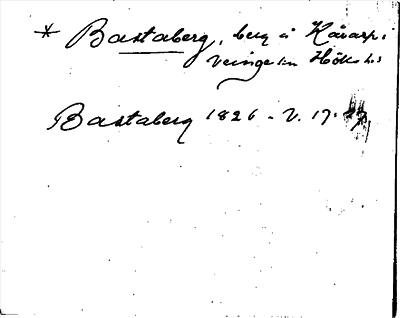 * Bastaberg, berg å Kårarp i
Veinge sn Höks hd
Bastaberg 1826 - V. 17.